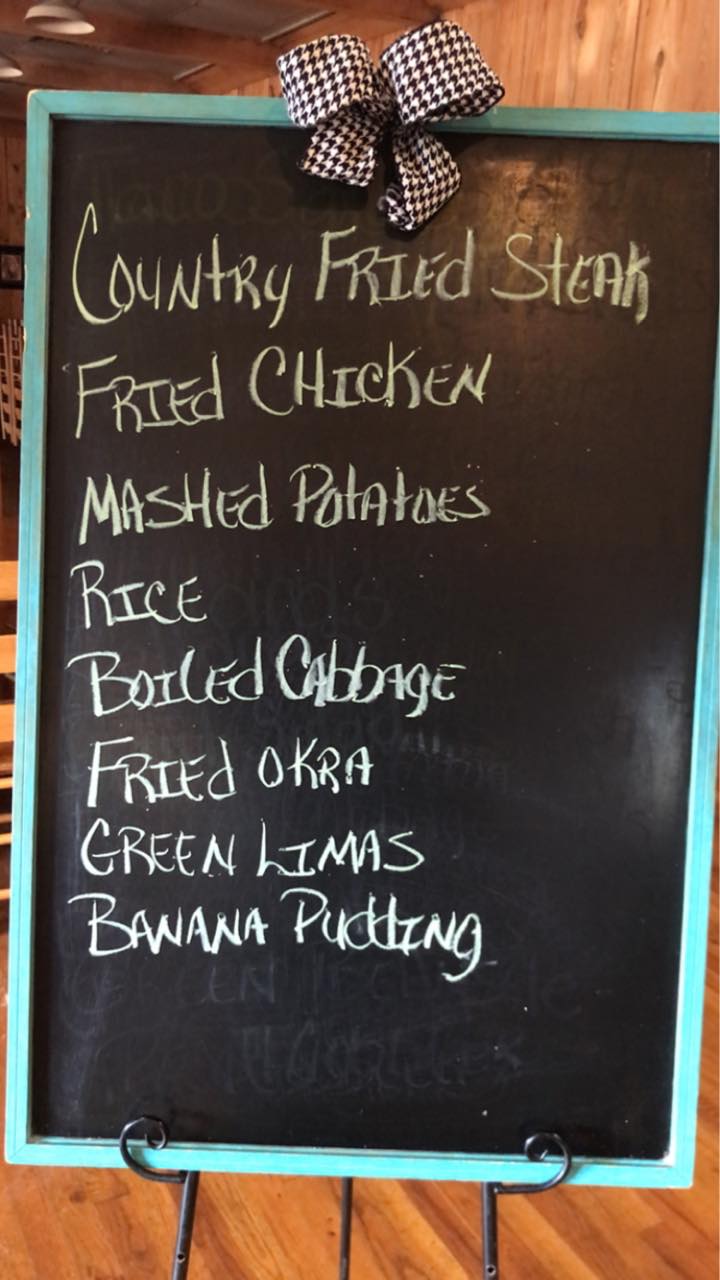 Country Fried Steak
Fried Chicken
Mashed Potatoes
Rice
Boiled Cabbage
Fried Okra
Green Limas
Banana Pudding